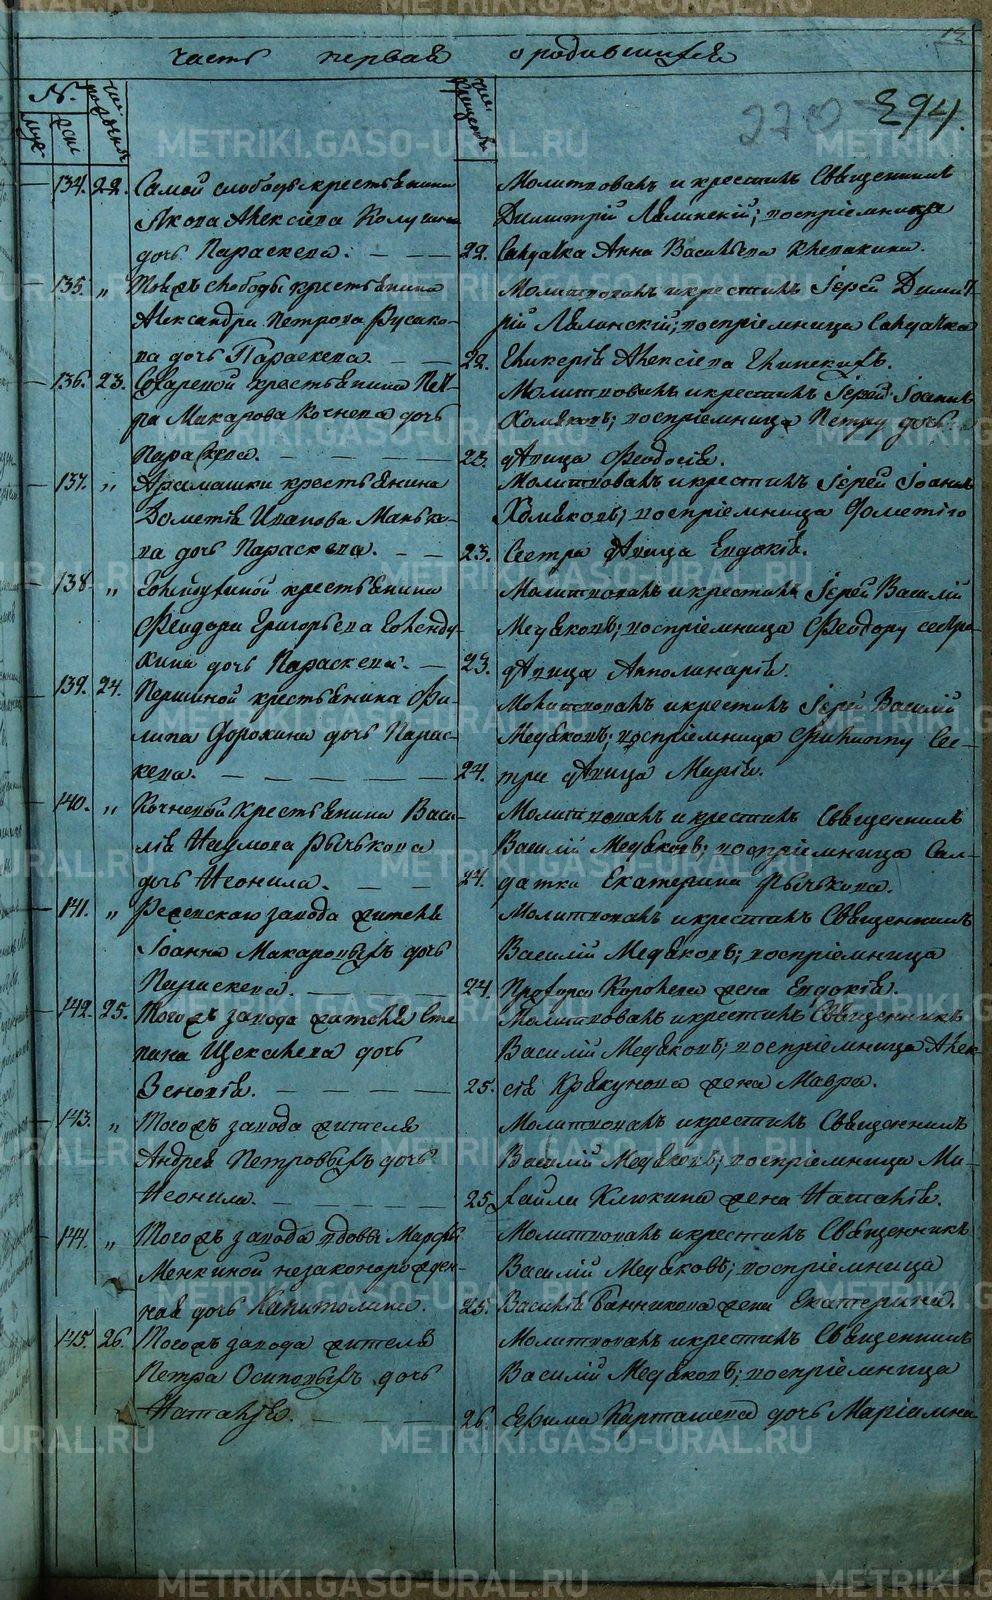 часть первая о родившихся
13
270 294.
№.
муж.
жен.
чис. рождения
чис. крещения
134. 22. Самой слободы крестьянина
Якова Алексѣева
дочь Параскева. 22.
Молитвовалъ и крестилъ Священникъ
Димитрій Лялинскій; воспріемница
Солдатка Анна Васильева
135. „ Тояжъ слободы крестьянина
Александра Петрова Русако-
ва дочь Параскева. 22.
Молитвовалъ и крестилъ Іерей Димит-
рій Лялинскій; воспріемница Солдатка
Гликерія Алексѣева
136. 23. крестьянина Пет-
ра Макарова Кочнева дочь
Параскева. 23.
Молитвовалъ и крестилъ Іерей Іоаннъ
Хомяковъ; воспріемница Петру дочь
дѣвица Феодосія.
137. „ Арамашки крестьянина
Дометія Иванова Мань-
ва дочь Параскева. 23.
Молитвовалъ и крестилъ Іерей Іоаннъ
Хомяковъ; воспріемница Дометію
Сестра дѣвица Евдокія.
138. „ крестьянина
Феодора Григорьева Голенду-
хина дочь Параскева. 23.
Молитвовалъ и крестилъ Іерей Василій
Медяковъ; воспріемница Феодору сестра
дѣвица Апполинарія.
139. 24. Першиной крестьянина Фи-
липа Дорохина дочь Парас-
кева. 24.
Молитвовалъ и крестилъ Іерей Василій
Медяковъ; воспріемница Филиппу Сес-
тра дѣвица Марія.
140. „ Кочневой крестьянина Васи-
лія Наумова Рычкова
дочь Неонила. 24.
Молитвовалъ и крестилъ Священникъ
Василій Медяковъ; воспріемница Сол-
датка Екатерина Рычкова.
141. „ Режевскаго завода жителя
Іоанна Макаровыхъ дочь
Параскева. 24.
Молитвовалъ и крестилъ Священникъ
Василій Медяковъ; воспріемница
Прохора Королева жена Евдокія.
142. 25. Тогожъ завода жителя Сте-
пана Щекалева дочь
Зеновія. 25.
Молитвовалъ и крестилъ Священникъ
Василій Медяковъ; воспріемница Алек-
сія Крякунова жена Мавра.
143. „ Тогожъ завода жителя
Андрея Петровыхъ дочь
Неонила. 25.
Молитвовалъ и крестилъ Священникъ
Василій Медяковъ; воспріемница Ми-
хаила Клюкина жена Наталія.
144. „ Тогожъ завода вдовы Марфы
Менкиной незаконорожден-
ная дочь Капитолина. 25.
Молитвовалъ и крестилъ Священникъ
Василій Медяковъ; воспріемница
Василія Банникова жена Екатерина.
145. 26. Тогожъ завода жителя
Петра Осиповыхъ дочь
Наталія. 26.
Молитвовалъ и крестилъ Священникъ
Василій Медяковъ; воспріемница
Ефима Карташева дочь Маріамна
METRIKI.GASO-URAL.RU